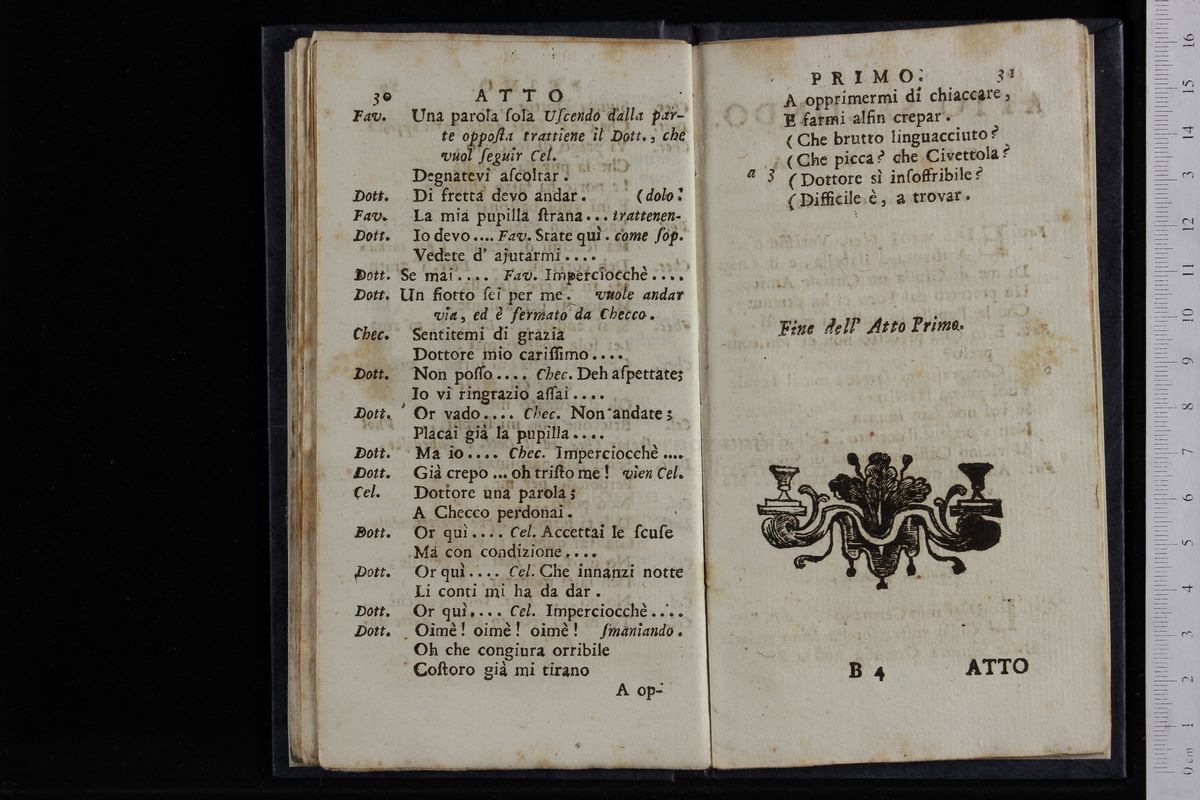 30 ATTO
Fav. Una parola ſola Uſcendo dalla par-
te oppoſta trattiene il Dott., che
vuol ſeguir Cel.
Degnatevi aſcoltar.
Dott. Di fretta devo andar. (dolo:
Fav. La mia pupilla ſtrana... trattenen-
Dott. Io devo.... Fav. State quì. come ſop.
Vedete d' ajutarmi....
Dott. Se mai.... Fav. Imperciocchè....
Dott. Un fiotto ſei per me. vuole andar
via, ed è fermato da Checco.
Chec. Sentitemi di grazia
Dottore mio cariſſimo....
Dott. Non poſſo.... Chec. Deh aſpettate;
Io vi ringrazio aſſai....
Dott. Or vado.... Chec. Non andate;
Placai già la pupilla....
Dott. Ma io.... Chec. Imperciocchè....
Dott. Già crepo... oh triſto me! vien Cel.
Cel. Dottore una parola;
A Checco perdonai.
Dott. Or quì.... Cel. Accettai le ſcuſe
Ma con condizione....
Dott. Or quì.... Cel. Che innanzi notte
Li conti mi ha da dar.
Dott. Or quì.... Cel. Imperciocchè....
Dott. Oimè! oimè! oimè! ſmaniando.
Oh che congiura orribile
Coſtoro già mi tirano
A op-
PRIMO. 31
A opprimermi di chiaccare,
E farmi alfin crepar.
(Che brutto linguacciuto?
(Che picca? che Civettola?
a 3 (Dottore sì inſoffribile?
(Difficile è, a trovar.
Fine dell' Atto Primo.
B 4 ATTO
0 cm 1 2 3 4 5 6 7 8 9 10 11 12 13 14 15 16